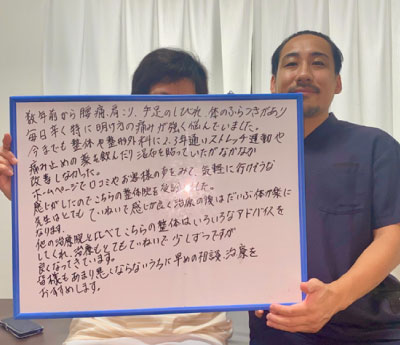 数年前から腰痛、肩こり、手足のしびれ、体のふらつきがあり
毎日辛く特に明け方の痛みが強く悩んでいました。
今までも整体や整形外科に2、3年通いストレッチ運動や
痛み止めの薬を飲んだり湿布を貼っていたがなかなか
改善しなかった。
ホームページで口コミやお客様の声をみて、気軽に行けそうな
感じがしたのでこちらの整体院を
先生はとてもていねいで感じが良く治療の後はだいぶ体が楽に
なります。
他の治療院と比べてこちらの整体はいろいろなアドバイスを
してくれ、治療もとてもていねいで少しずつですが
良くなってきています。
皆様もあまり悪くならないうちに早めの相談、治療を
おすすめします。